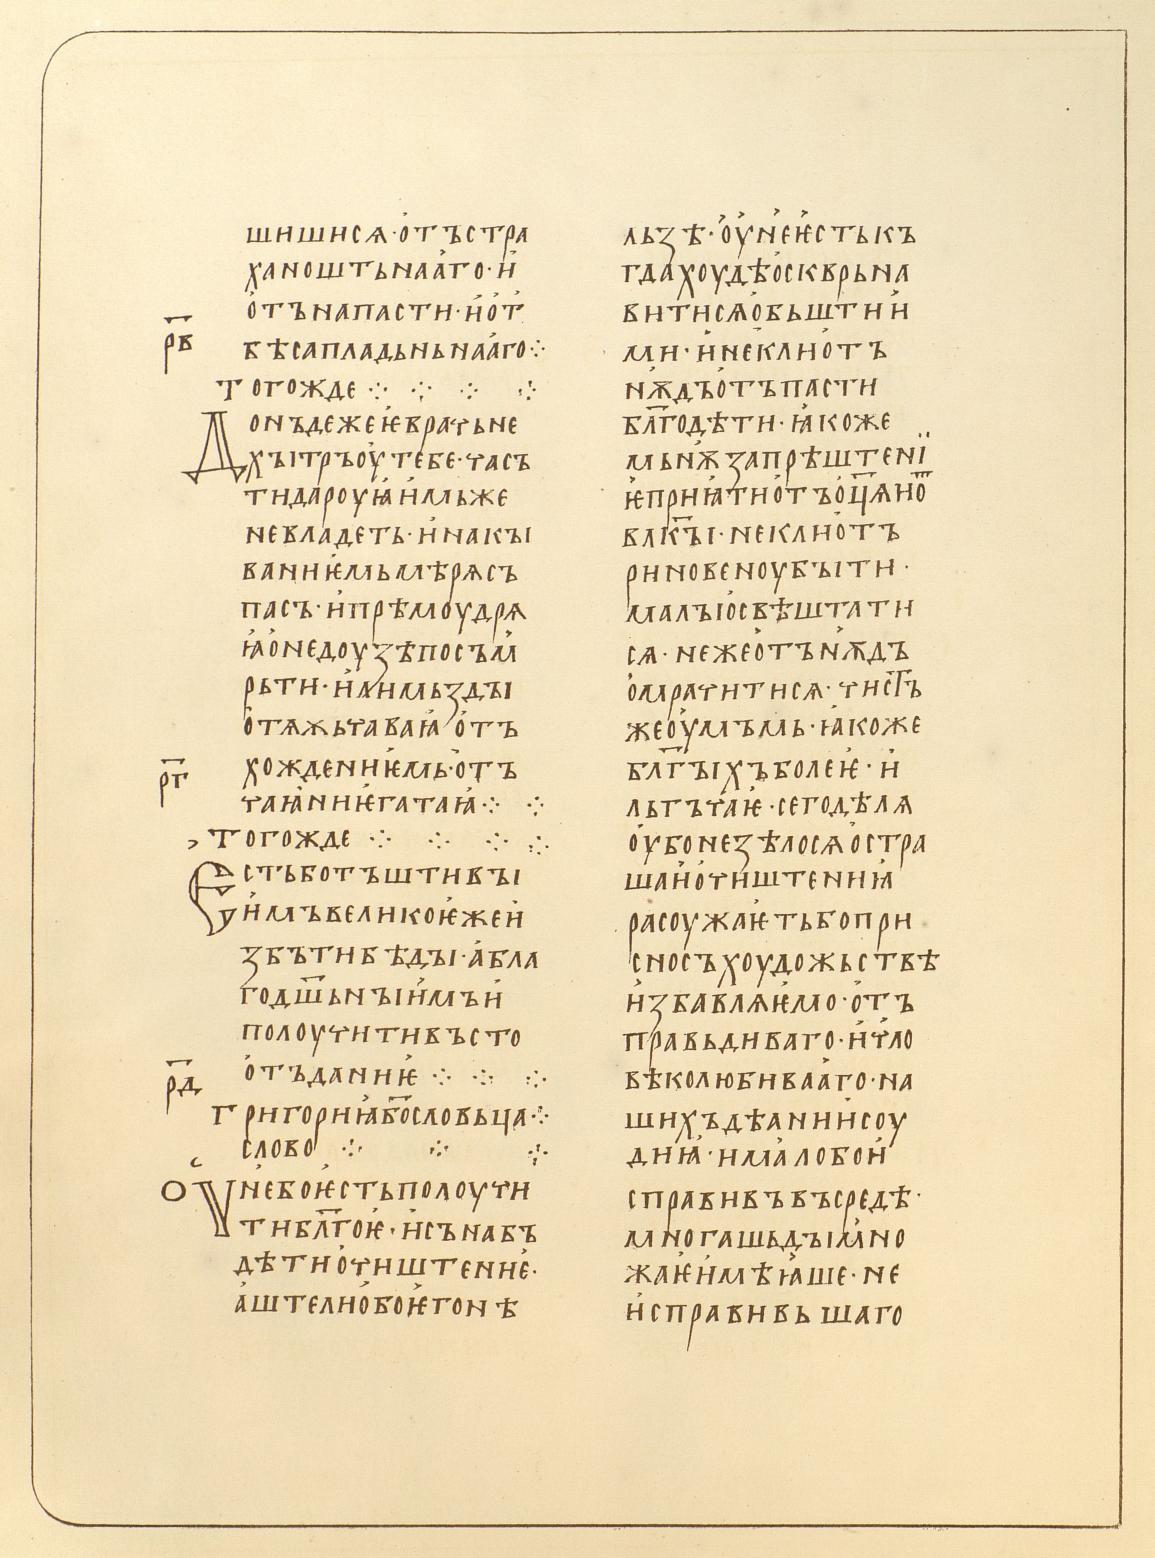 шишисѧ·отъстра
ханоштьнааго·и
отънапасти·иот
р҃в
бѣсапладьньнааго⁘
тогожде ⁘ ⁘ ⁘ ⁘
Донъдежеѥвратьне
хътръоутебе·часъ
тидароуꙗимьже
невладеть·инакꙑ
ваниѥмьмѣрѧсъ
пасъ·ипрѣмоудрѧ
ꙗонедоуѕѣпосъм
рьти·илимьздꙑ
отѧжьчаваꙗотъ
р҃г
хождениѥмь·отъ
чаꙗниѥгатаꙗ⁘ ⁘
тогожде ⁘ ⁘ ⁘ ⁘
Єстьботъштивꙑ
имъвеликоѥжеи
збътибѣдꙑ·абла
год҃шьнꙑимъи
получитивъсто
р҃д
отъданиѥ ⁘ ⁘ ⁘
григориꙗб҃ословьца⁘
слово ⁘ ⁘ ⁘
Оунебоѥстьполоучи
тибл҃гоѥ·исънабъ
дѣтиочиштение·
аштелиобоѥгонѣ
льзѣ·оунеѥстькъ
гдахоудѣосквьрьна
витисѧобьштии
ми·инеклиотъ
нѫдъотъпасти
бл҃годѣти·ꙗкоже
мьнѫзапрѣштені
ѥприꙗтиотъо҃цѧно
влк҃ꙑ·неклиотъ
риновеноубꙑти·
малꙑосвѣштати
сѧ·нежеотънѫдъ
омрачитисѧ·чис҃гъ
жеоумъмь·ꙗкоже
бл҃гꙑхъболеѥ·и
льгъчаѥ·сегодѣлѧ
оубонеѕѣлосѧостра
шаиочиштениꙗ
расоужаѥтьбопри
сносъхоудожьствѣ
избавлѧѥмо·отъ
правьдиваго·ичло
вѣколюбивааго·на
шихъдѣаниисоу
диꙗ·ималобои
справивъвъсредѣ·
многашьдꙑмно
жаѥимѣꙗше·не
исправивьшаго